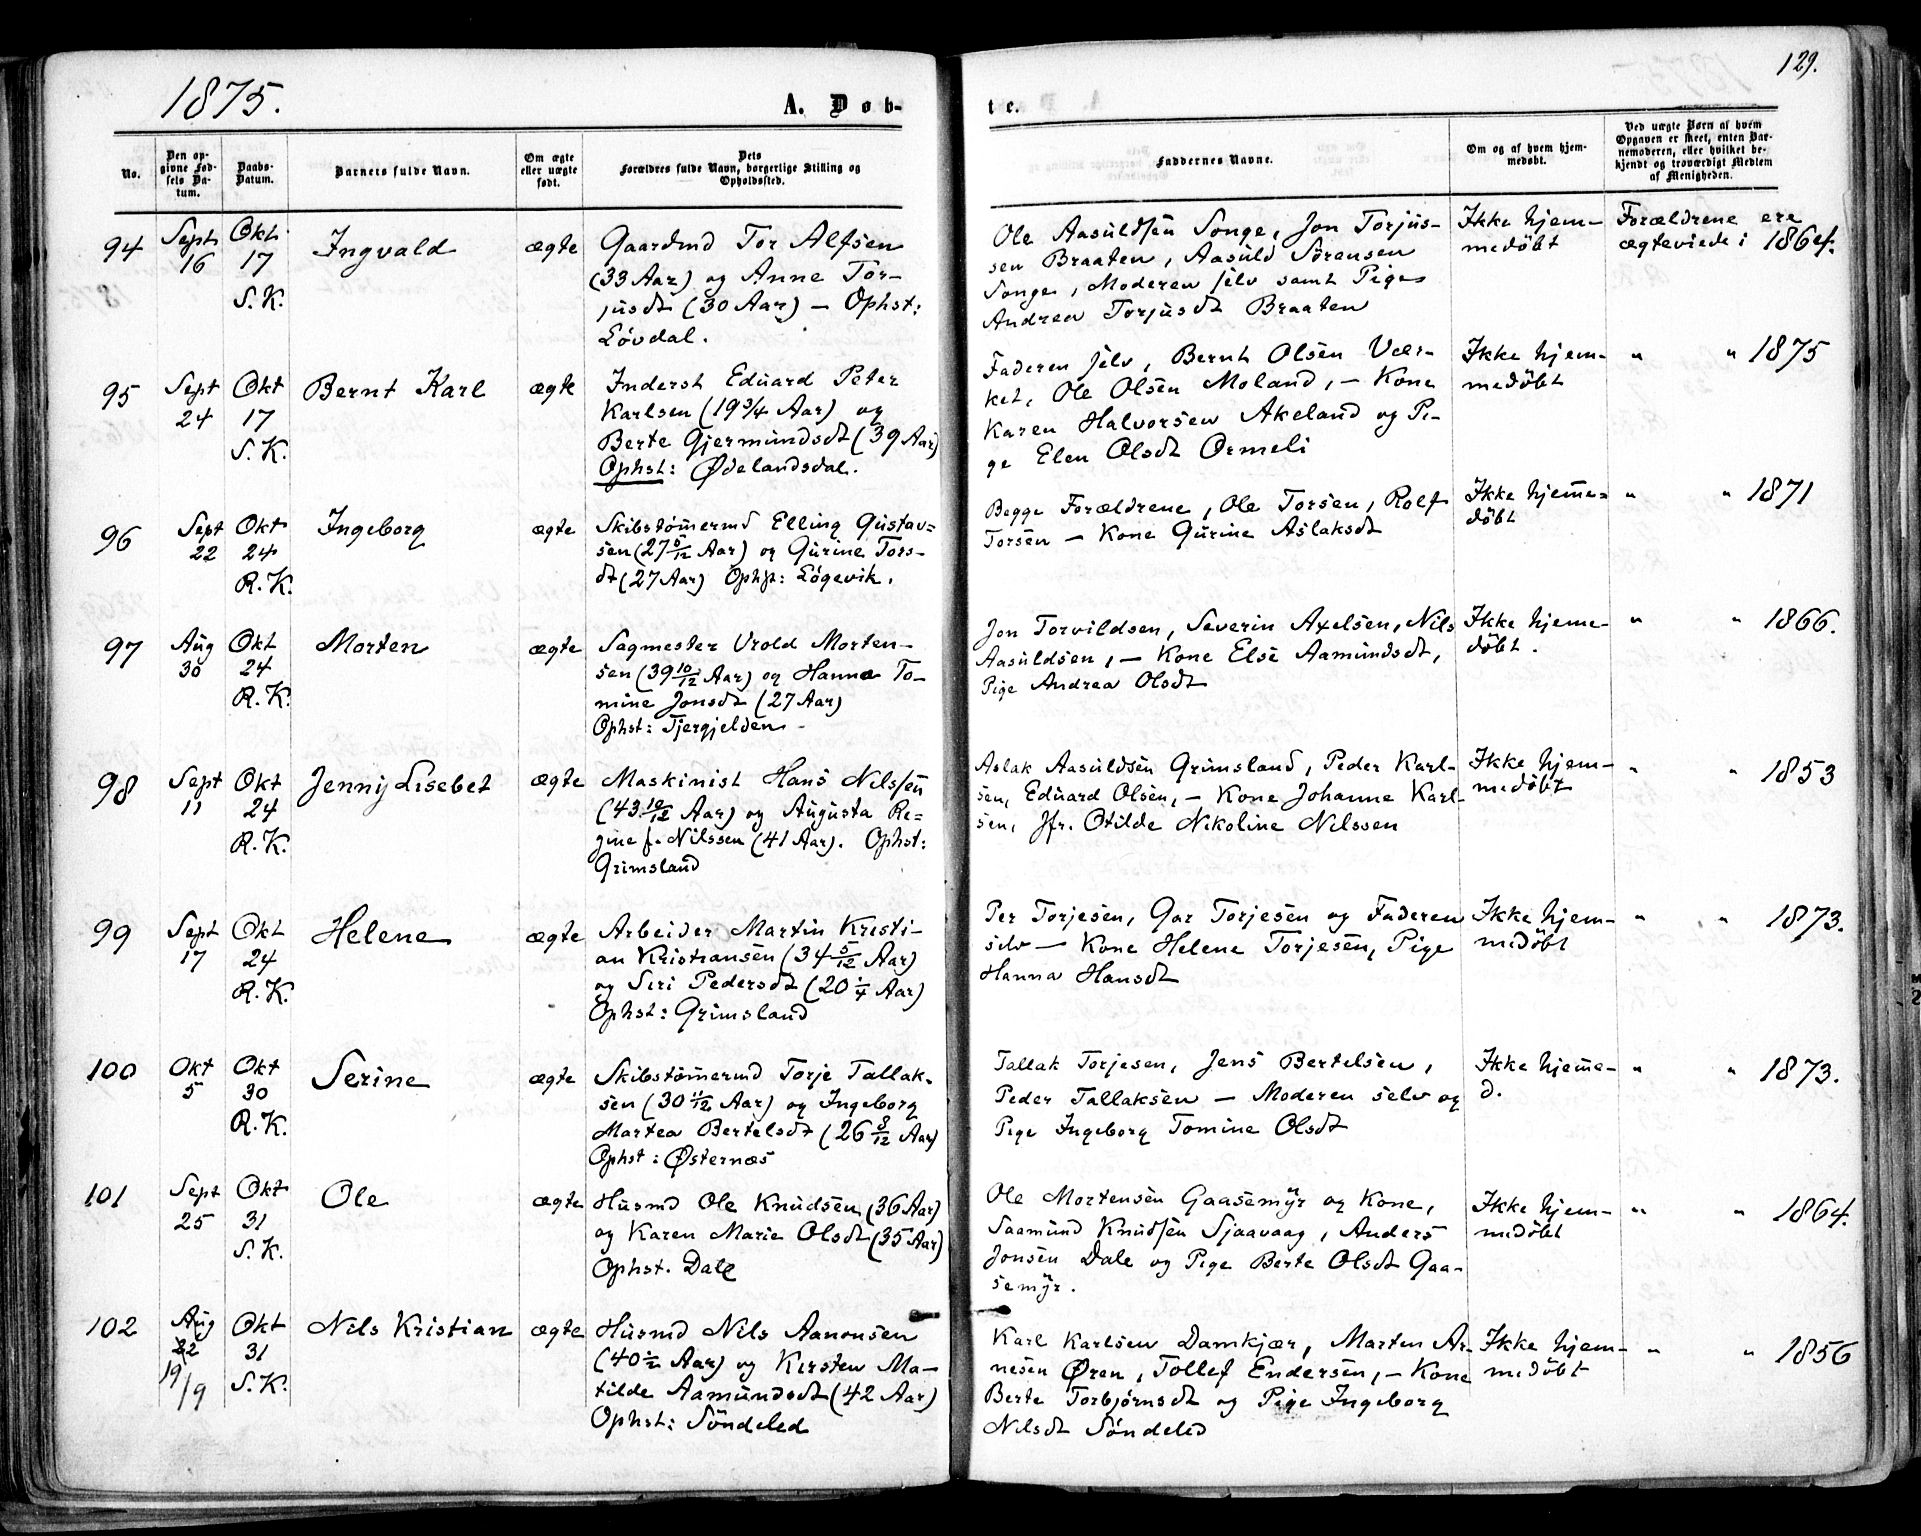 1875.
A. Døb-
te.
129.
No.
Den op-
givne Fød-
sels Da-
tum.
Daabs-
Datum.
Barnets fulde Navn.
Om ægte
eller uægte
født.
Dets
Forældres fulde Navn, borgerlige Stilling og
Opholdssted.
Faddernes Navne.
Om og af hvem hjem-
medøbt.
Ved uægte Børn af hvem
Opgaven er skeet, enten Bar-
nemoderen, eller hvilket be-
kjendt og troværdigt Medlem
af Menigheden.
94
Sept
16
Okt
17
S. K.
Ingvald
ægte
Gaardmd Tor Alfsen
(33 Aar) og Anne Tor-
jusdt (30 Aar) — Ophst:
Løvdal.
Ole Aasuldsen Songe, Jon Torjus-
sen Braaten, Aasuld Sørensen
Songe, Moderen selv samt Pige
Andrea Torjusdt Braaten
Ikke hjem-
medøbt
Forældrene ere
ægteviede i 1864.
95
Sept
24
Okt
17
S. K.
Bernt Karl
ægte
Inderst Eduard Peter
Karlsen (19 3/4 Aar) og
Berte Gjermundsdt (39 Aar)
Ophst: Ødelandsdal.
Faderen selv, Bernt Olsen Vær-
ket, Ole Olsen Moland, — Kone
Karen Halvorsen Akeland og Pi-
ge Elen Olsdt Ormeli
Ikke hjem-
medøbt
" " 1875
96
Sept
22
Okt
24
R. K.
Ingeborg
ægte
Skibstømermd Elling Gustav-
sen (27 5/12 Aar) og Gurine Tors-
dt (27 Aar) Ophst: Løgevik.
Begge Forældrene, Ole Torsen, Rolf
Torsen — Kone Gurine Aslaksdt
Ikke hjeme-
døbt
" " 1871
97
Aug
30
Okt
24
R. K.
Morten
ægte
Sagmester Vrold Morten-
sen (39 10/12 Aar) og Hanna To-
mine Jonsdt (27 Aar)
Ophst: Tjergjelden
Jon Torvildsen, Severin Axelsen, Nils
Aasuldsen, — Kone Else Aamundsdt,
Pige Andrea Olsdt
Ikke hjeme-
døbt.
" " 1866.
98
Sept
11
Okt
24
R. K.
Jenny Lisebet
ægte
Maskinist Hans Nilssen
(43 10/12 Aar) og Augusta Re-
gine f. Nilssen (41 Aar). Ophst:
Grimsland
Aslak Aasuldsen Grimsland, Peder Karl-
sen, Eduard Olsen, — Kone Johanne Karl-
sen, Jfr. Otilde Nikoline Nilssen
Ikke hjem-
medøbt
" " 1853
99
Sept
17
Okt
24
R. K.
Helene
ægte
Arbeider Martin Kristi-
an Kristiansen (34 5/12 Aar)
og Siri Pedersdt (20 1/4 Aar)
Ophst: Grimsland
Per Torjesen, Gar Torjesen og Faderen
selv — Kone Helene Torjesen, Pige
Hanna Hansdt
Ikke hjem-
medøbt
" " 1873.
100
Okt
5
Okt
30
R. K.
Serine
ægte
Skibstømermd Torje Tallak-
sen (30 11/12 Aar) og Ingeborg
Martea Bertelsdt (26 8/12 Aar)
Ophst: Østernæs
Tallak Torjesen, Jens Bertelsen,
Peder Tallaksen — Moderen selv og
Pige Ingeborg Tomine Olsdt
Ikke hjeme-
d.
" " 1873.
101
Sept
25
Okt
31
S. K.
Ole
ægte
Husmd Ole Knudsen (36 Aar)
og Karen Marie Olsdt (35 Aar)
Ophst. Dale
Ole Mortensen Gaasemyr og Kone,
Saamund Knudsen Sjaavaag, Anders
Jonsen Dale og Pige Berte Olsdt Gaa-
semyr.
Ikke hjem-
medøbt
" " 1864.
102
Aug
22
19/9
Okt
31
S. K.
Nils Kristian
ægte
Husmd Nils Aanonsen
(40 1/2 Aar) og Kirsten Ma-
tilde Aamundsdt (42 Aar)
Ophst: Søndeled
Karl Karlsen Damkjær, Morten Ar-
nesen Øren, Tollef Endersen, — Kone
Berte Torbjørnsdt og Pige Ingeborg
Nilsdt Søndeled
Ikke hjem-
medøbt
" " 1856